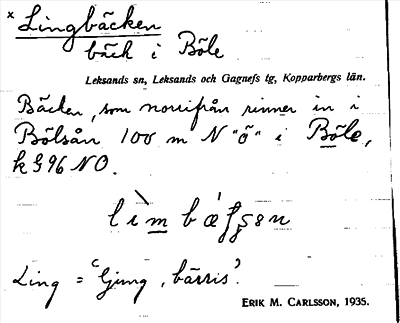 × Lingbäcken
bäck i Böle
Leksands sn, Leksands och Gagnefs tg, Kopparbergs län.
Bäcken, som norrifrån rinner in i
Bölsån 100 m N "ö" i Böle,
k § 96 NO.
Ling = 'ljung, bärris'.
ERIK M. CARLSSON, 1935.